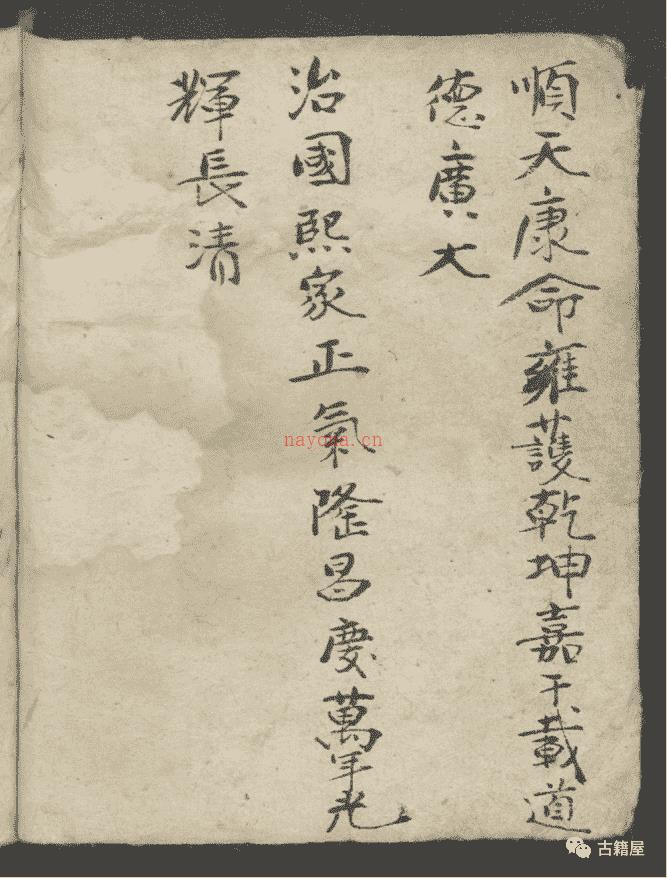 順天康命雍護乾坤嘉千載道
德廣大
治國熙家正氣隆昌慶萬年光
輝長清
nayona.cn
古籍屋